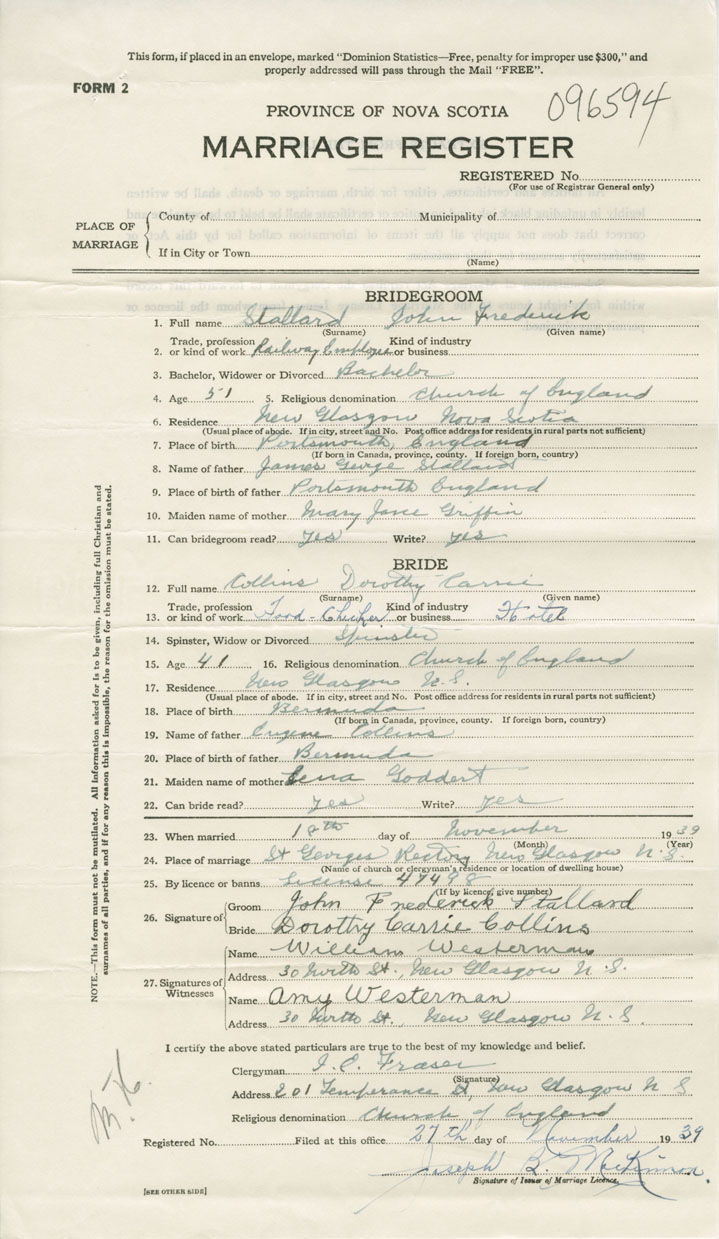 This form, if placed in an envelope, marked "Dominion Statistics—Free, penalty for improper use $300," and
properly addressed will pass through the Mail "FREE".
FORM 2
096594
PROVINCE OF NOVA SCOTIA
MARRIAGE REGISTER
REGISTERED No.
(For use of Registrar General only)
PLACE OF MARRIAGE
County of Municipality of
If in City or Town
(Name)
BRIDEGROOM
1. Full name Stallard John Frederick
(Surname) (Given name)
2. Trade, profession or kind of work Railway Employee Kind of industry or business
3. Bachelor, Widower or Divorced Bachelor
4. Age 51 5. Religious denomination Church of England
6. Residence New Glasgow Nova Scotia
(Usual place of abode. If in city, street and No. Post office address for residents in rural parts not sufficient)
7. Place of birth Portsmouth, England
(If born in Canada, province, county. If foreign born, country)
8. Name of father James George Stallard
9. Place of birth of father Portsmouth England
10. Maiden name of mother Mary Jane Griffin
11. Can bridegroom read? yes Write? yes
BRIDE
12. Full name Collins Dorothy Carrie
(Surname) (Given name)
13. Trade, profession or kind of work Food-Checker Kind of industry or business Hotel
14. Spinster, Widow or Divorced Spinster
15. Age 41 16. Religious denomination Church of England
17. Residence New Glasgow N.S.
(Usual place of abode. If in city, street and No. Post office address for residents in rural parts not sufficient)
18. Place of birth Bermuda
(If born in Canada, province, county. If foreign born, country)
19. Name of father Eugene Collins
20. Place of birth of father Bermuda
21. Maiden name of mother Lena Goddert
22. Can bride read? yes Write? yes
23. When married 18th day of November 1939
(Month) (Year)
24. Place of marriage St Georges Rectory New Glasgow N.S.
(Name of church or clergyman's residence or location of dwelling house)
25. By licence or banns License 47498
(If by licence, give number)
26. Signature of
Groom John Frederick Stallard
Bride Dorothy Carrie Collins
27. Signatures of Witnesses
Name William Westerman
Address 30 North St., New Glasgow N.S.
Name Amy Westerman
Address 30 North St., New Glasgow N.S.
I certify the above stated particulars are true to the best of my knowledge and belief.
Clergyman Fraser
(Signature)
Address 201 Temperance St, New Glasgow N S
Religious denomination Church of England
Registered No. Filed at this office 27th day of November 1939
Joseph B. McKinnon.
Signature of Issuer of Marriage Licence.
[SEE OTHER SIDE]
NOTE.—This form must not be mutilated. All Information asked for is to be given, including full Christian and
surnames of all parties, and if for any reason this is impossible, the reason for the omission must be stated.